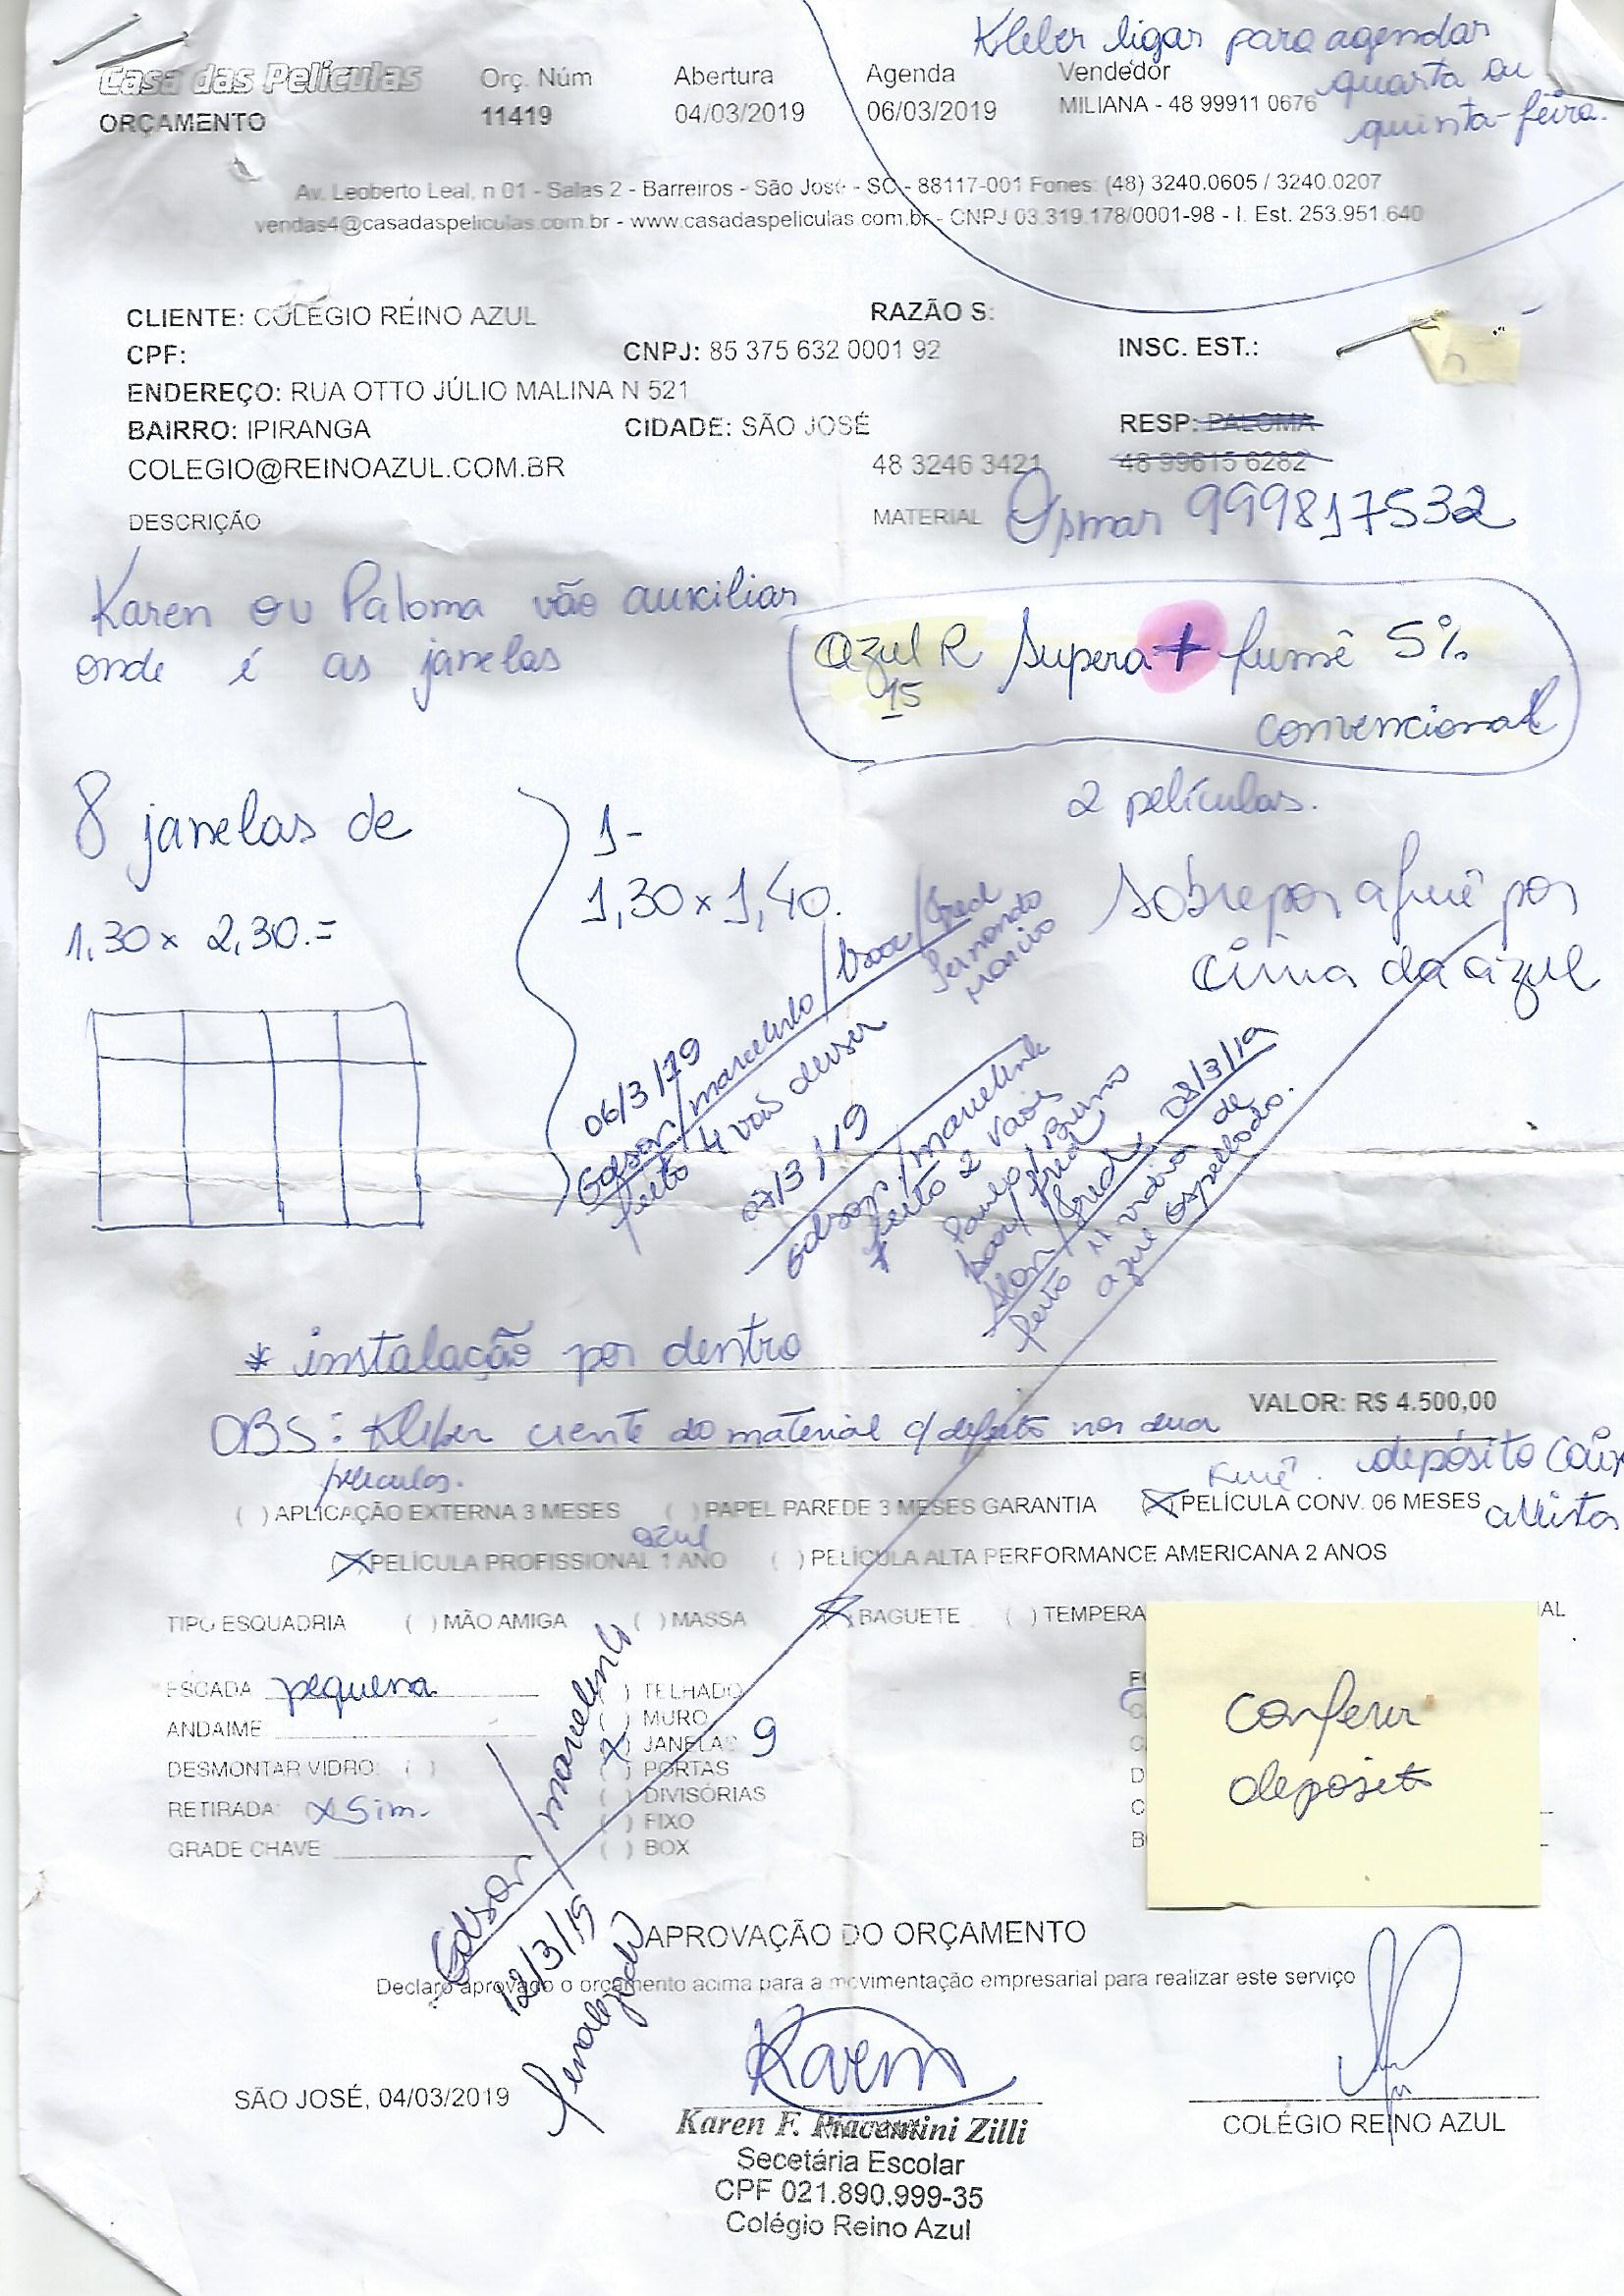 Kleber ligar para agendar
quarta ou
quinta-feira.
Casa das Películas
ORÇAMENTO
Orç. Núm
11419
Abertura
04/03/2019
Agenda
06/03/2019
Vendedor
MILIANA - 48 99911 0676
Av. Leoberto Leal, n 01 - Salas 2 - Barreiros - São José - SC - 88117-001 Fones: (48) 3240.0605 / 3240.0207
vendas4@casadaspeliculas.com.br - www.casadaspeliculas.com.br - CNPJ 03.319.178/0001-98 - I. Est. 253.951.640
CLIENTE: COLÉGIO REINO AZUL RAZÃO S:
CPF: CNPJ: 85 375 632 0001 92 INSC. EST.:
ENDEREÇO: RUA OTTO JÚLIO MALINA N 521
BAIRRO: IPIRANGA CIDADE: SÃO JOSÉ RESP: PALOMA
COLEGIO@REINOAZUL.COM.BR 48 3246 3421 48 99615 6282
DESCRIÇÃO MATERIAL Osmar 999817532
Karen ou Paloma vão auxiliar
onde é as janelas
azul R Supera + fumê 5%
15
convencional
2 películas.
8 janelas de
1,30 x 2,30.=
1-
1,30 x 1,40.
Sobrepor a fumê por
cima da azul
06/3/19
Edson/marcelinho/
Fred
Fernando
feito 4 vãos
07/3/19
Edson/marcelinho
feito 2 vãos
08/3/19
feito 11 vidros de
azul espelhado.
* instalação por dentro
VALOR: R$ 4.500,00
OBS: Kleber ciente do material c/ defeito nas duas
películas.
fumê.
depósito
( ) APLICAÇÃO EXTERNA 3 MESES ( ) PAPEL PAREDE 3 MESES GARANTIA (X) PELÍCULA CONV. 06 MESES
azul
(X) PELÍCULA PROFISSIONAL 1 ANO ( ) PELÍCULA ALTA PERFORMANCE AMERICANA 2 ANOS
TIPO ESQUADRIA ( ) MÃO AMIGA ( ) MASSA (X) BAGUETE ( ) TEMPERA
AL
ESCADA pequena
ANDAIME
DESMONTAR VIDRO: ( )
RETIRADA: x Sim.
GRADE CHAVE
( ) TELHADO
( ) MURO
(X) JANELAS 9
( ) PORTAS
( ) DIVISÓRIAS
( ) FIXO
( ) BOX
conferir
depósito
Edson/marcelinho
12/3/19
finalizado
APROVAÇÃO DO ORÇAMENTO
Declaro aprovado o orçamento acima para a movimentação empresarial para realizar este serviço
SÃO JOSÉ, 04/03/2019
Karem
Karen F. Piacentini Zilli
Secetária Escolar
CPF 021.890.999-35
Colégio Reino Azul
COLÉGIO REINO AZUL